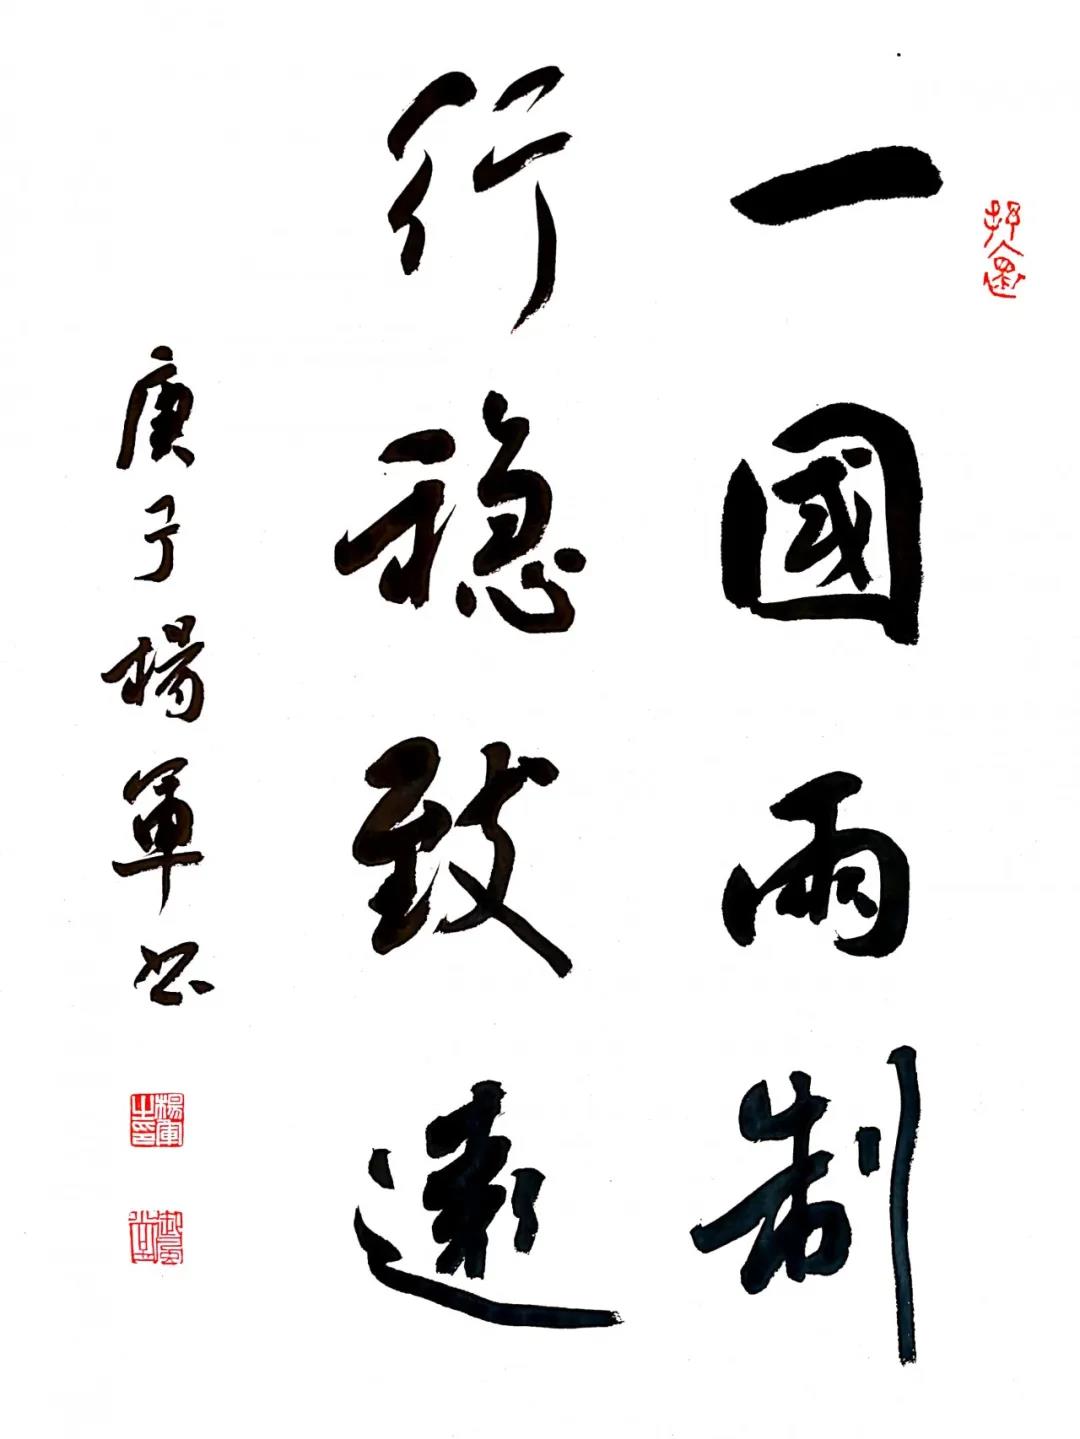 一國兩制
行稳致遠
庚子楊軍书
楊軍之印